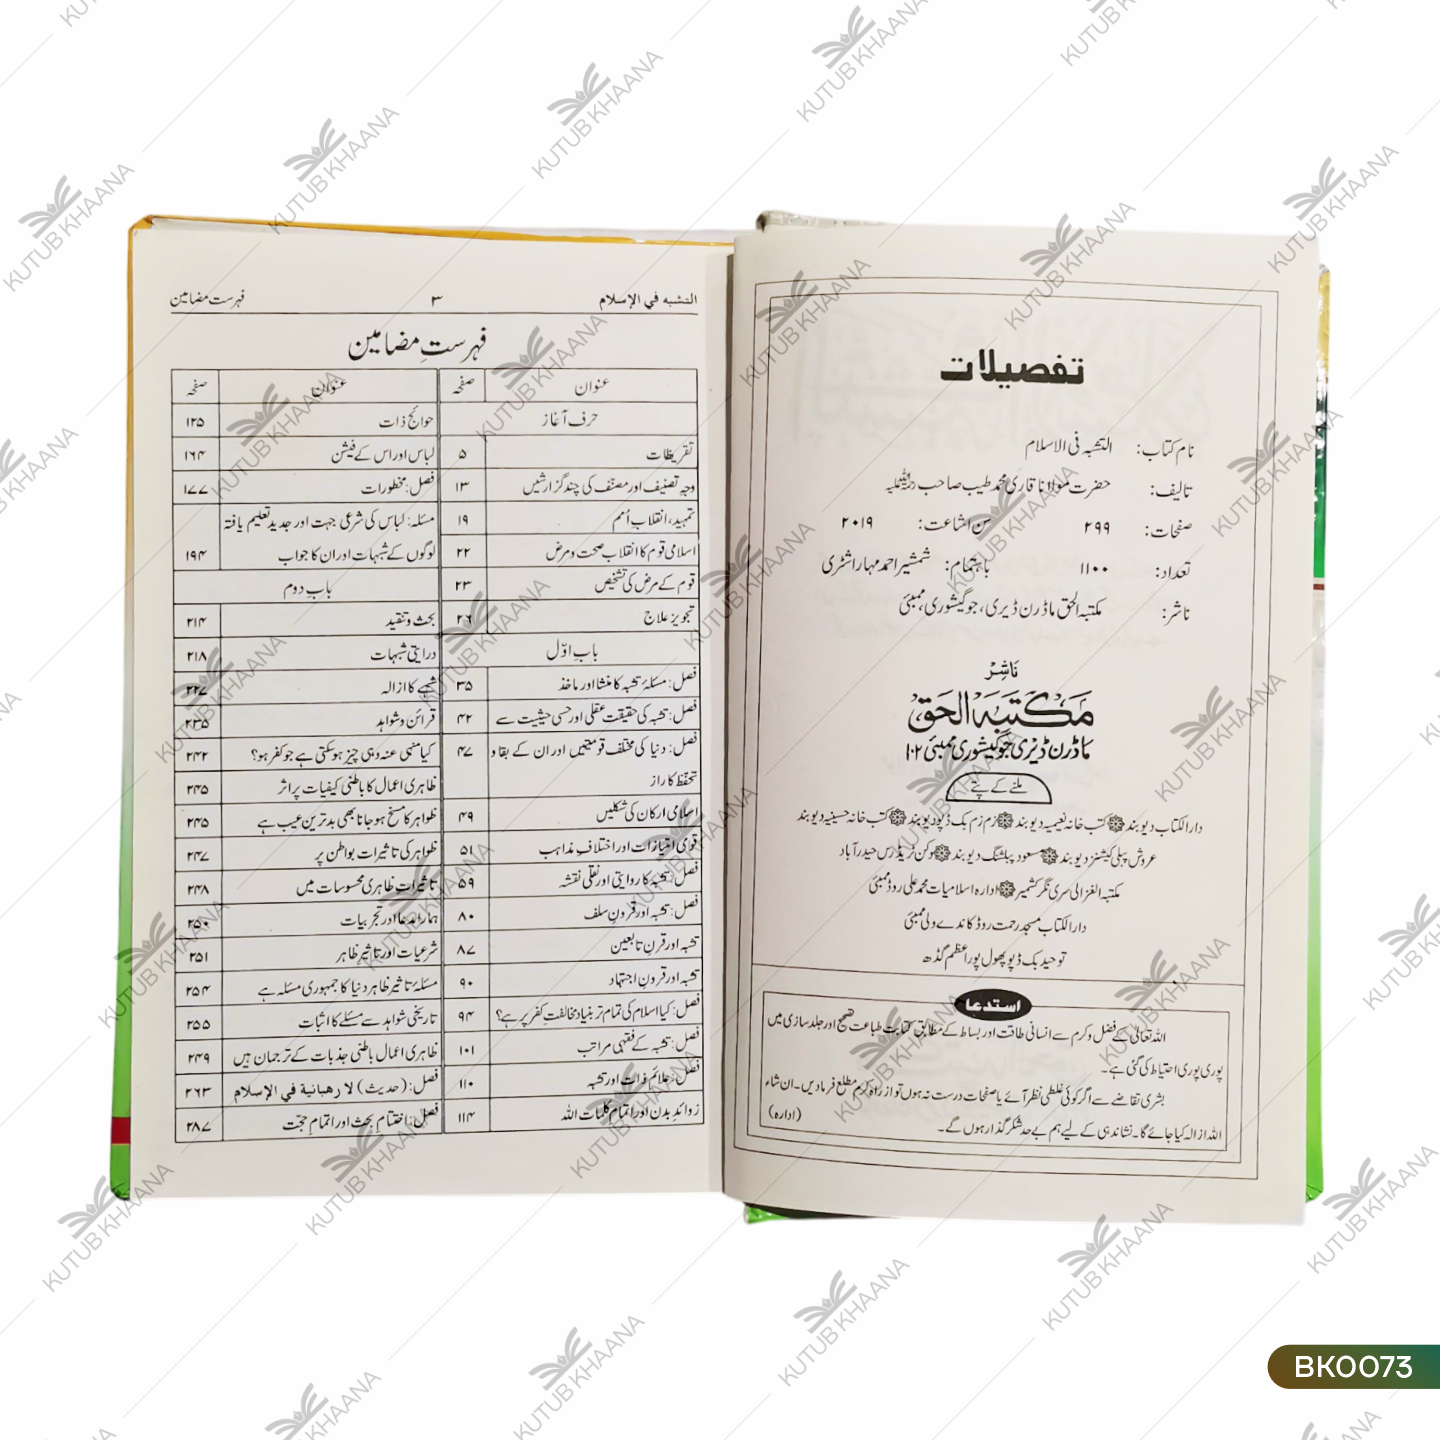 تفصیلات
نام کتاب: التشبہ فی الاسلام
تالیف: حضرت مولانا قاری محمد طیب صاحب رحمۃ اللہ علیہ
صفحات: ۲۹۹ سن اشاعت: ۲۰۱۹
تعداد: ۱۱۰۰ باہتمام: شمشیر احمد مہاراشٹری
ناشر: مکتبہ الحق ماڈرن ڈیری، جوگیشوری، ممبئی
ناشر
مکتبہ الحق
ماڈرن ڈیری جوگیشوری ممبئی ۱۰۲
ملنے کے پتے
دار الکتاب دیوبند کتب خانہ نعیمیہ دیوبند زم زم بک ڈپو دیوبند کتب خانہ حسینیہ دیوبند
عروش پبلی کیشنز دیوبند مسعود پبلشنگ دیوبند دکن ٹریڈرس حیدرآباد
مکتبہ الغزالی سری نگر کشمیر ادارہ اسلامیات محمد علی روڈ ممبئی
دار الکتاب مسجد رحمت روڈ کاندے ولی ممبئی
توحید بک ڈپو پھول پور اعظم گڈھ
استدعا
اللہ تعالیٰ کے فضل و کرم سے انسانی طاقت اور بساط کے مطابق کتابت طباعت تصحیح اور جلد سازی میں
پوری پوری احتیاط کی گئی ہے۔
بشری تقاضے سے اگر کوئی غلطی نظر آئے یا صفحات درست نہ ہوں تو از راہ کرم مطلع فرمادیں۔ ان شاء
اللہ ازالہ کیا جائے گا۔ نشاندہی کے لیے ہم بے حد شکر گذار ہوں گے۔ (ادارہ)
التشبه في الإسلام ۳ فہرست مضامین
فہرستِ مضامین
عنوان صفحہ
حرف آغاز
تقریظات ۵
وجہ تصنیف اور مصنّف کی چند گزارشیں ۱۳
تمہید، انقلاب اُمم ۱۹
اسلامی قوم کا انقلاب صحت و مرض ۲۲
قوم کے مرض کی تشخیص ۲۳
تجویز علاج ۲۶
باب اوّل
فصل: مسئلۂ تشبہ کا منشا اور ماخذ ۳۵
فصل: تشبہ کی حقیقت عقلی اور حسی حیثیت سے ۴۲
فصل: دنیا کی مختلف قومیتیں اور ان کے بقا و ۴۷
تحفّظ کا راز
اسلامی ارکان کی شکلیں ۴۹
قومی امتیازات اور اختلافِ مذاہب ۵۱
فصل: تشبہ کا روایتی اور نقلی نقشہ ۵۹
فصل: تشبہ اور قرونِ سلف ۸۰
تشبہ اور قرنِ تابعین ۸۷
تشبہ اور قرونِ اجتہاد ۹۰
فصل: کیا اسلام کی تمام تر بنیاد مخالفتِ کفر پر ہے؟ ۹۴
فصل: تشبہ کے فقہی مراتب ۱۰۱
فصل: علائم ذات اور تشبہ ۱۱۰
زوائدِ بدن اور اتمام کلمات اللہ ۱۱۴
عنوان صفحہ
حوائج ذات ۱۲۵
لباس اور اس کے فیشن ۱۶۴
فصل: محظورات ۱۷۷
مسئلہ: لباس کی شرعی جہت اور جدید تعلیم یافتہ
لوگوں کے شبہات اور ان کا جواب ۱۹۴
باب دوم
بحث و تنقید ۲۱۴
درایتی شبہات ۲۱۸
شبہے کا ازالہ ۲۲۷
قرائن و شواہد ۲۳۵
کیا منہی عنہ وہی چیز ہوسکتی ہے جو کفر ہو؟ ۲۴۲
ظاہری اعمال کا باطنی کیفیات پر اثر ۲۴۵
ظواہر کا مسخ ہوجانا بھی بدترین عیب ہے ۲۴۵
ظواہر کی تاثیرات بواطن پر ۲۴۷
تاثیرات ظاہری محسوسات میں ۲۴۸
ہمارا مدعا اور تجربیات ۲۵۰
شرعیات اور تاثیرِ ظاہر ۲۵۱
مسئلۂ تاثیر ظاہر دنیا کا جمہوری مسئلہ ہے ۲۵۴
تاریخی شواہد سے مسئلے کا اثبات ۲۵۵
ظاہری اعمال باطنی جذبات کے ترجمان ہیں ۲۴۹
فصل: (حدیث) لا رهبانية في الإسلام ۲۶۳
فصل: اختتام بحث اور اتمام حجت ۲۸۷
KUTUB KHAANA
BK0073